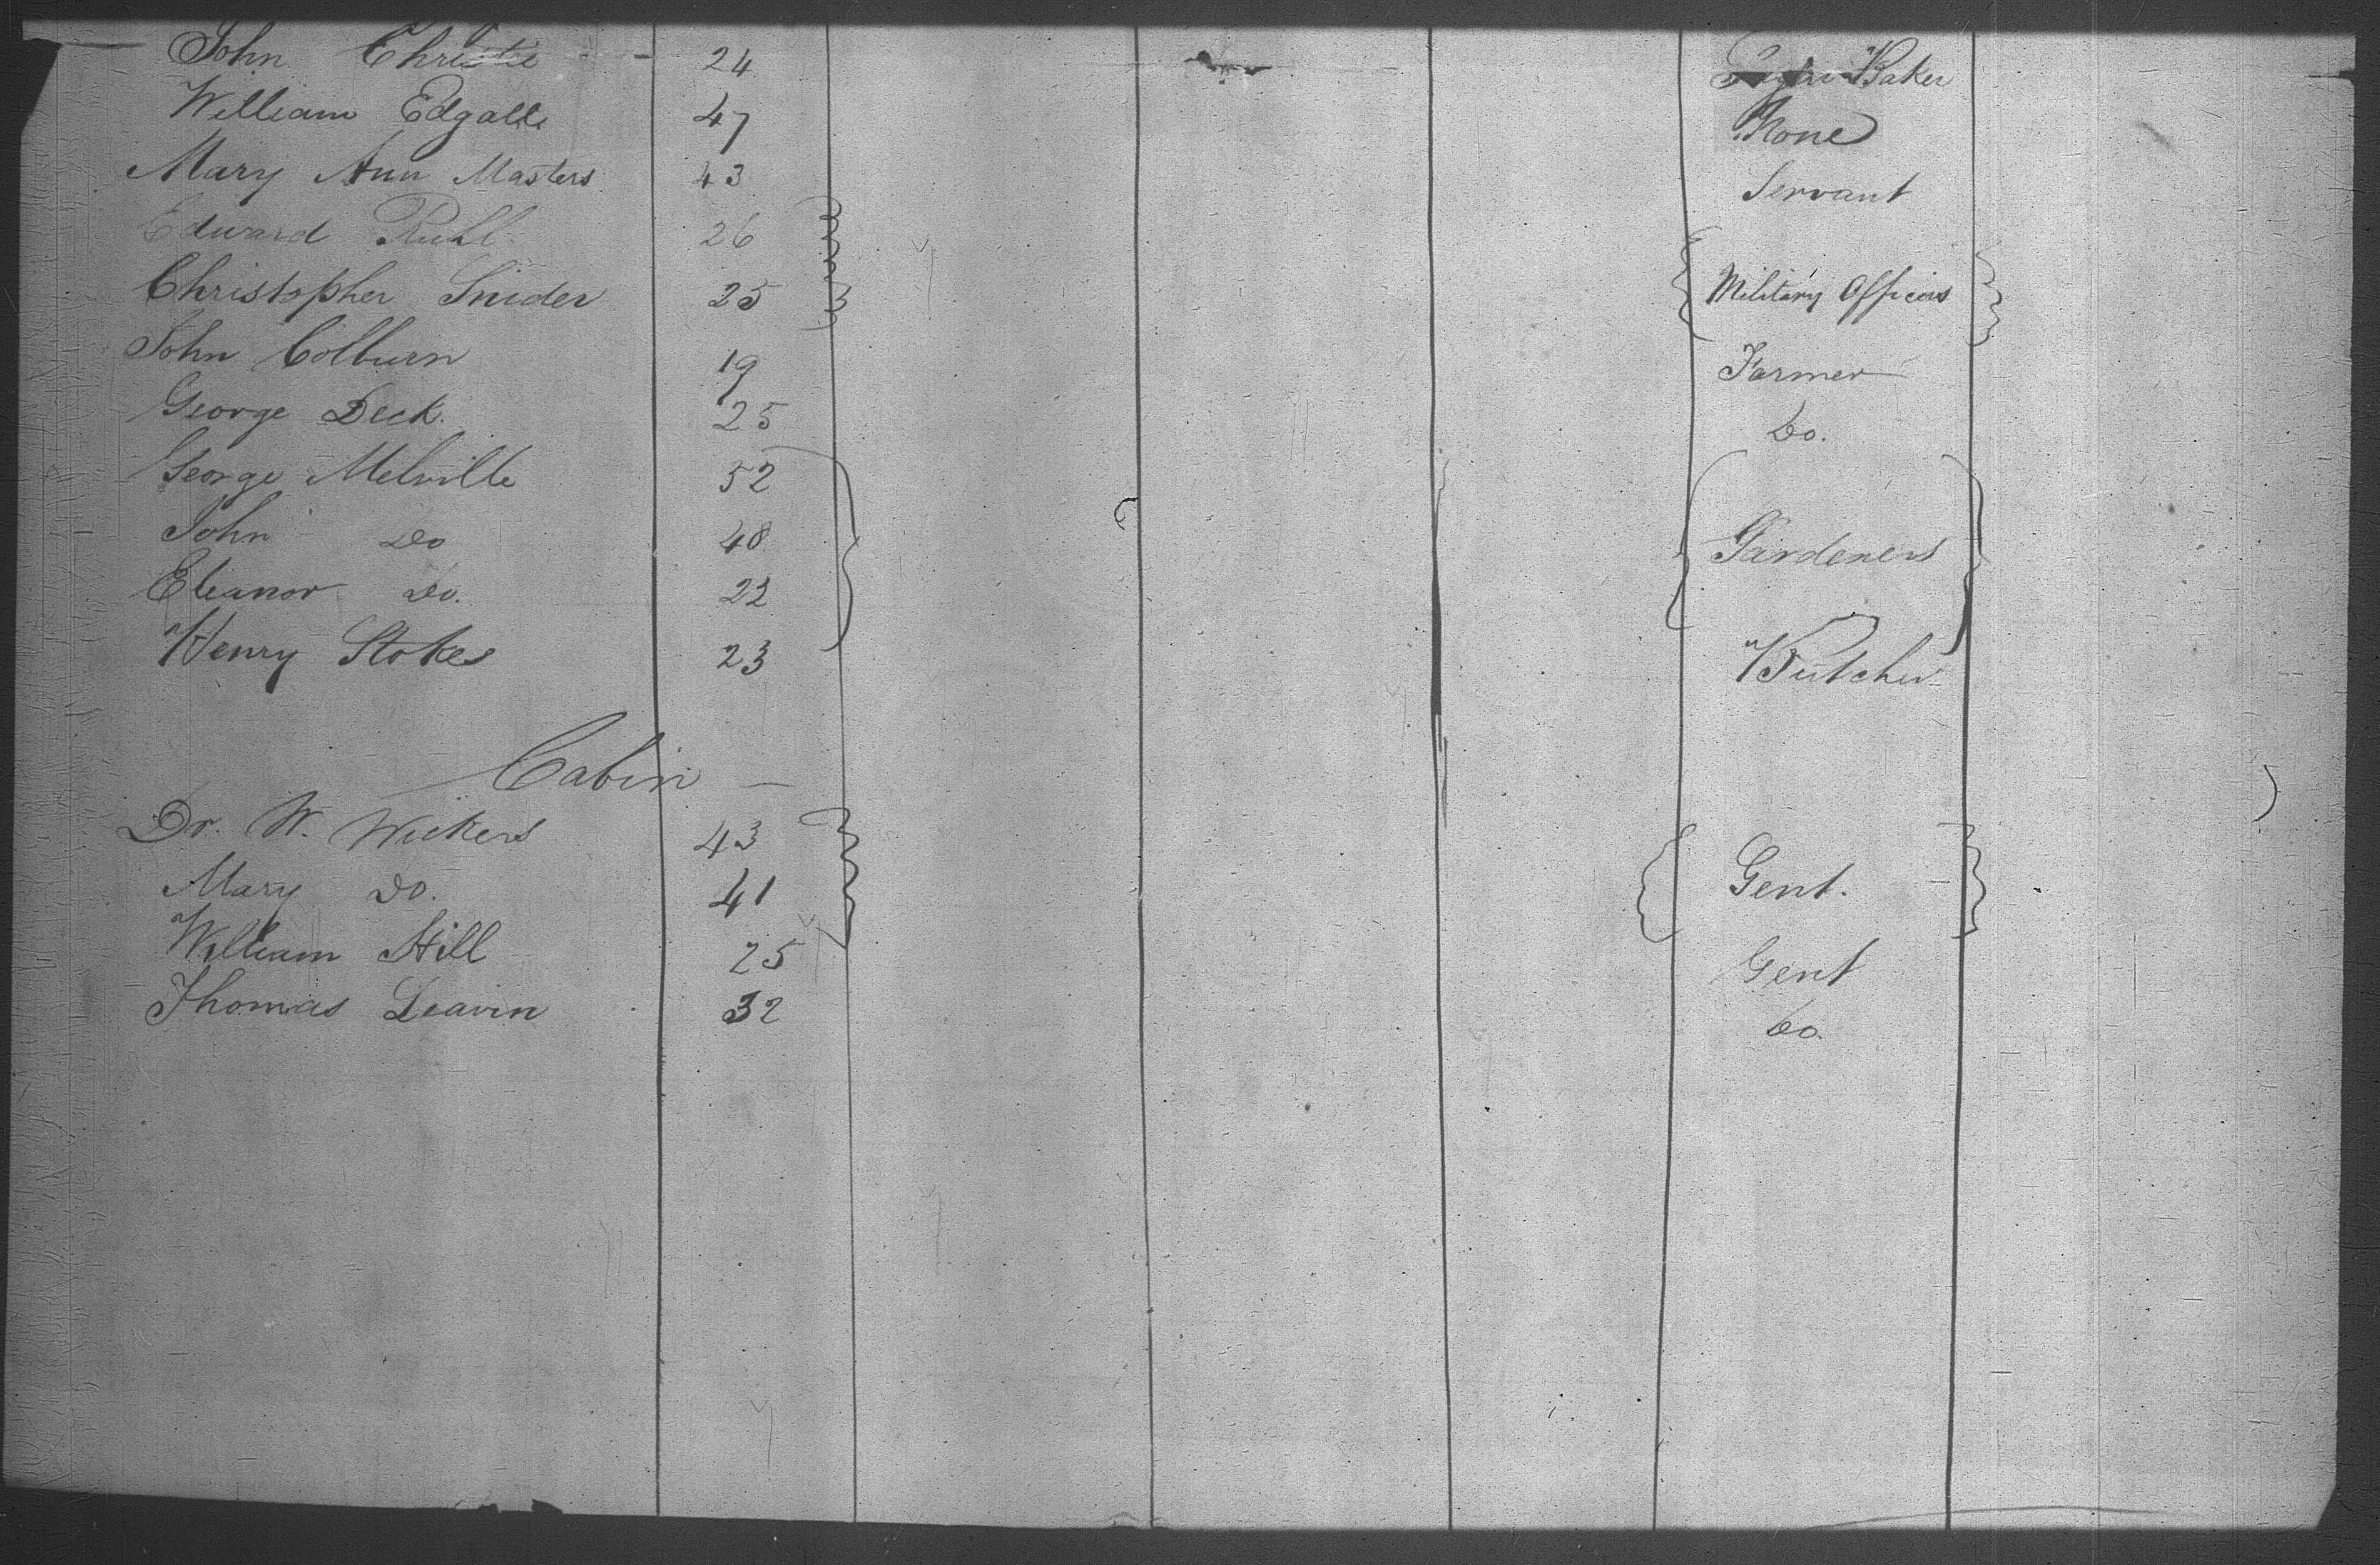 John Christie 24 Baker
William Edgall 47 None
Mary Ann Masters 43 Servant
Edward Ruhl 26
Christopher Snider 25 Military Officers
John Colburn 19 Farmer
George Deck. 25 Do.
George Melville 52
John Do 48 Gardeners
Eleanor Do. 22
Henry Stokes 23 Butcher
Cabin
Dr. W. Wickers 43
Mary Do. 41 Gent.
William Hill 25 Gent
Thomas Deavin 32 Do.